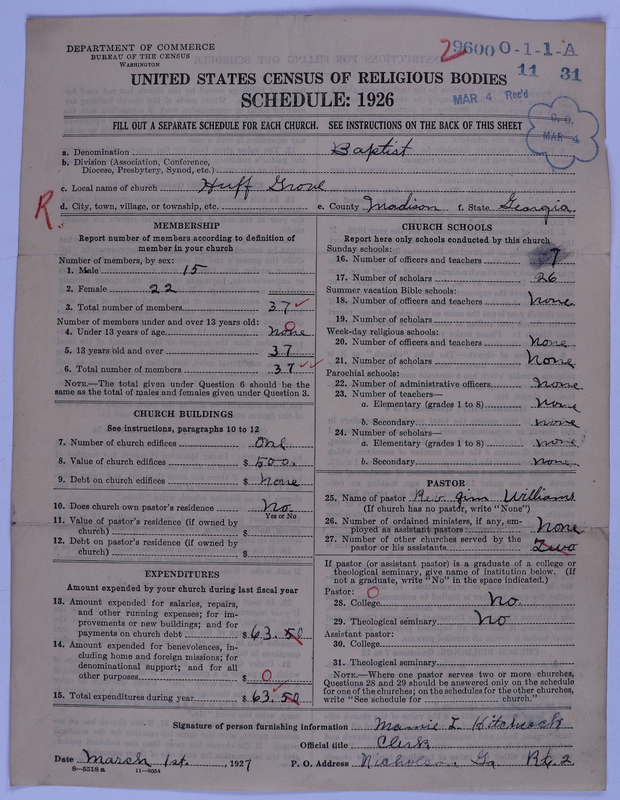 DEPARTMENT OF COMMERCE
BUREAU OF THE CENSUS
WASHINGTON
29600 0-1-1-A
11 31
MAR 4 Rec'd
UNITED STATES CENSUS OF RELIGIOUS BODIES
SCHEDULE: 1926
C. O.
MAR 4
FILL OUT A SEPARATE SCHEDULE FOR EACH CHURCH. SEE INSTRUCTIONS ON THE BACK OF THIS SHEET
a. Denomination Baptist
b. Division (Association, Conference,
Diocese, Presbytery, Synod, etc.)
c. Local name of church Huff Grove
R.
d. City, town, village, or township, etc. e. County Madison f. State Georgia
MEMBERSHIP
Report number of members according to definition of
member in your church
Number of members, by sex:
1. Male 15
2. Female 22
3. Total number of members 37
Number of members under and over 13 years old:
4. Under 13 years of age none 0
5. 13 years old and over 37
6. Total number of members 37
NOTE.—The total given under Question 6 should be the
same as the total of males and females given under Question 3.
CHURCH BUILDINGS
See instructions, paragraphs 10 to 12
7. Number of church edifices One
8. Value of church edifices $ 500.
9. Debt on church edifices $ None
10. Does church own pastor's residence No.
Yes or No
11. Value of pastor's residence (if owned by
church) $
12. Debt on pastor's residence (if owned by
church) $
EXPENDITURES
Amount expended by your church during last fiscal year
13. Amount expended for salaries, repairs,
and other running expenses; for im-
provements or new buildings; and for
payments on church debt $ 63.50
14. Amount expended for benevolences, in-
cluding home and foreign missions; for
denominational support; and for all
other purposes $ 0
15. Total expenditures during year $ 63.50
CHURCH SCHOOLS
Report here only schools conducted by this church
Sunday schools:
16. Number of officers and teachers 7
17. Number of scholars 26
Summer vacation Bible schools:
18. Number of officers and teachers None
19. Number of scholars
Week-day religious schools:
20. Number of officers and teachers None
21. Number of scholars None
Parochial schools:
22. Number of administrative officers None
23. Number of teachers—
a. Elementary (grades 1 to 8) None
b. Secondary None
24. Number of scholars—
a. Elementary (grades 1 to 8) none
b. Secondary none
PASTOR
25. Name of pastor Rev. Jim Williams
(If church has no pastor, write "None")
26. Number of ordained ministers, if any, em-
ployed as assistant pastors None
27. Number of other churches served by the
pastor or his assistants Two
If pastor (or assistant pastor) is a graduate of a college or
theological seminary, give name of institution below. (If
not a graduate, write "No" in the space indicated.)
Pastor: 0
28. College No.
29. Theological seminary No
Assistant pastor:
30. College
31. Theological seminary
NOTE.—Where one pastor serves two or more churches,
Questions 28 and 29 should be answered only on the schedule
for one of the churches; on the schedules for the other churches,
write "See schedule for church."
Signature of person furnishing information Mamie L. Hitchcock
Official title Clerk
Date March 1st., 1927 P. O. Address Nicholson Ga Rt. 2
8-5518a 11-9054